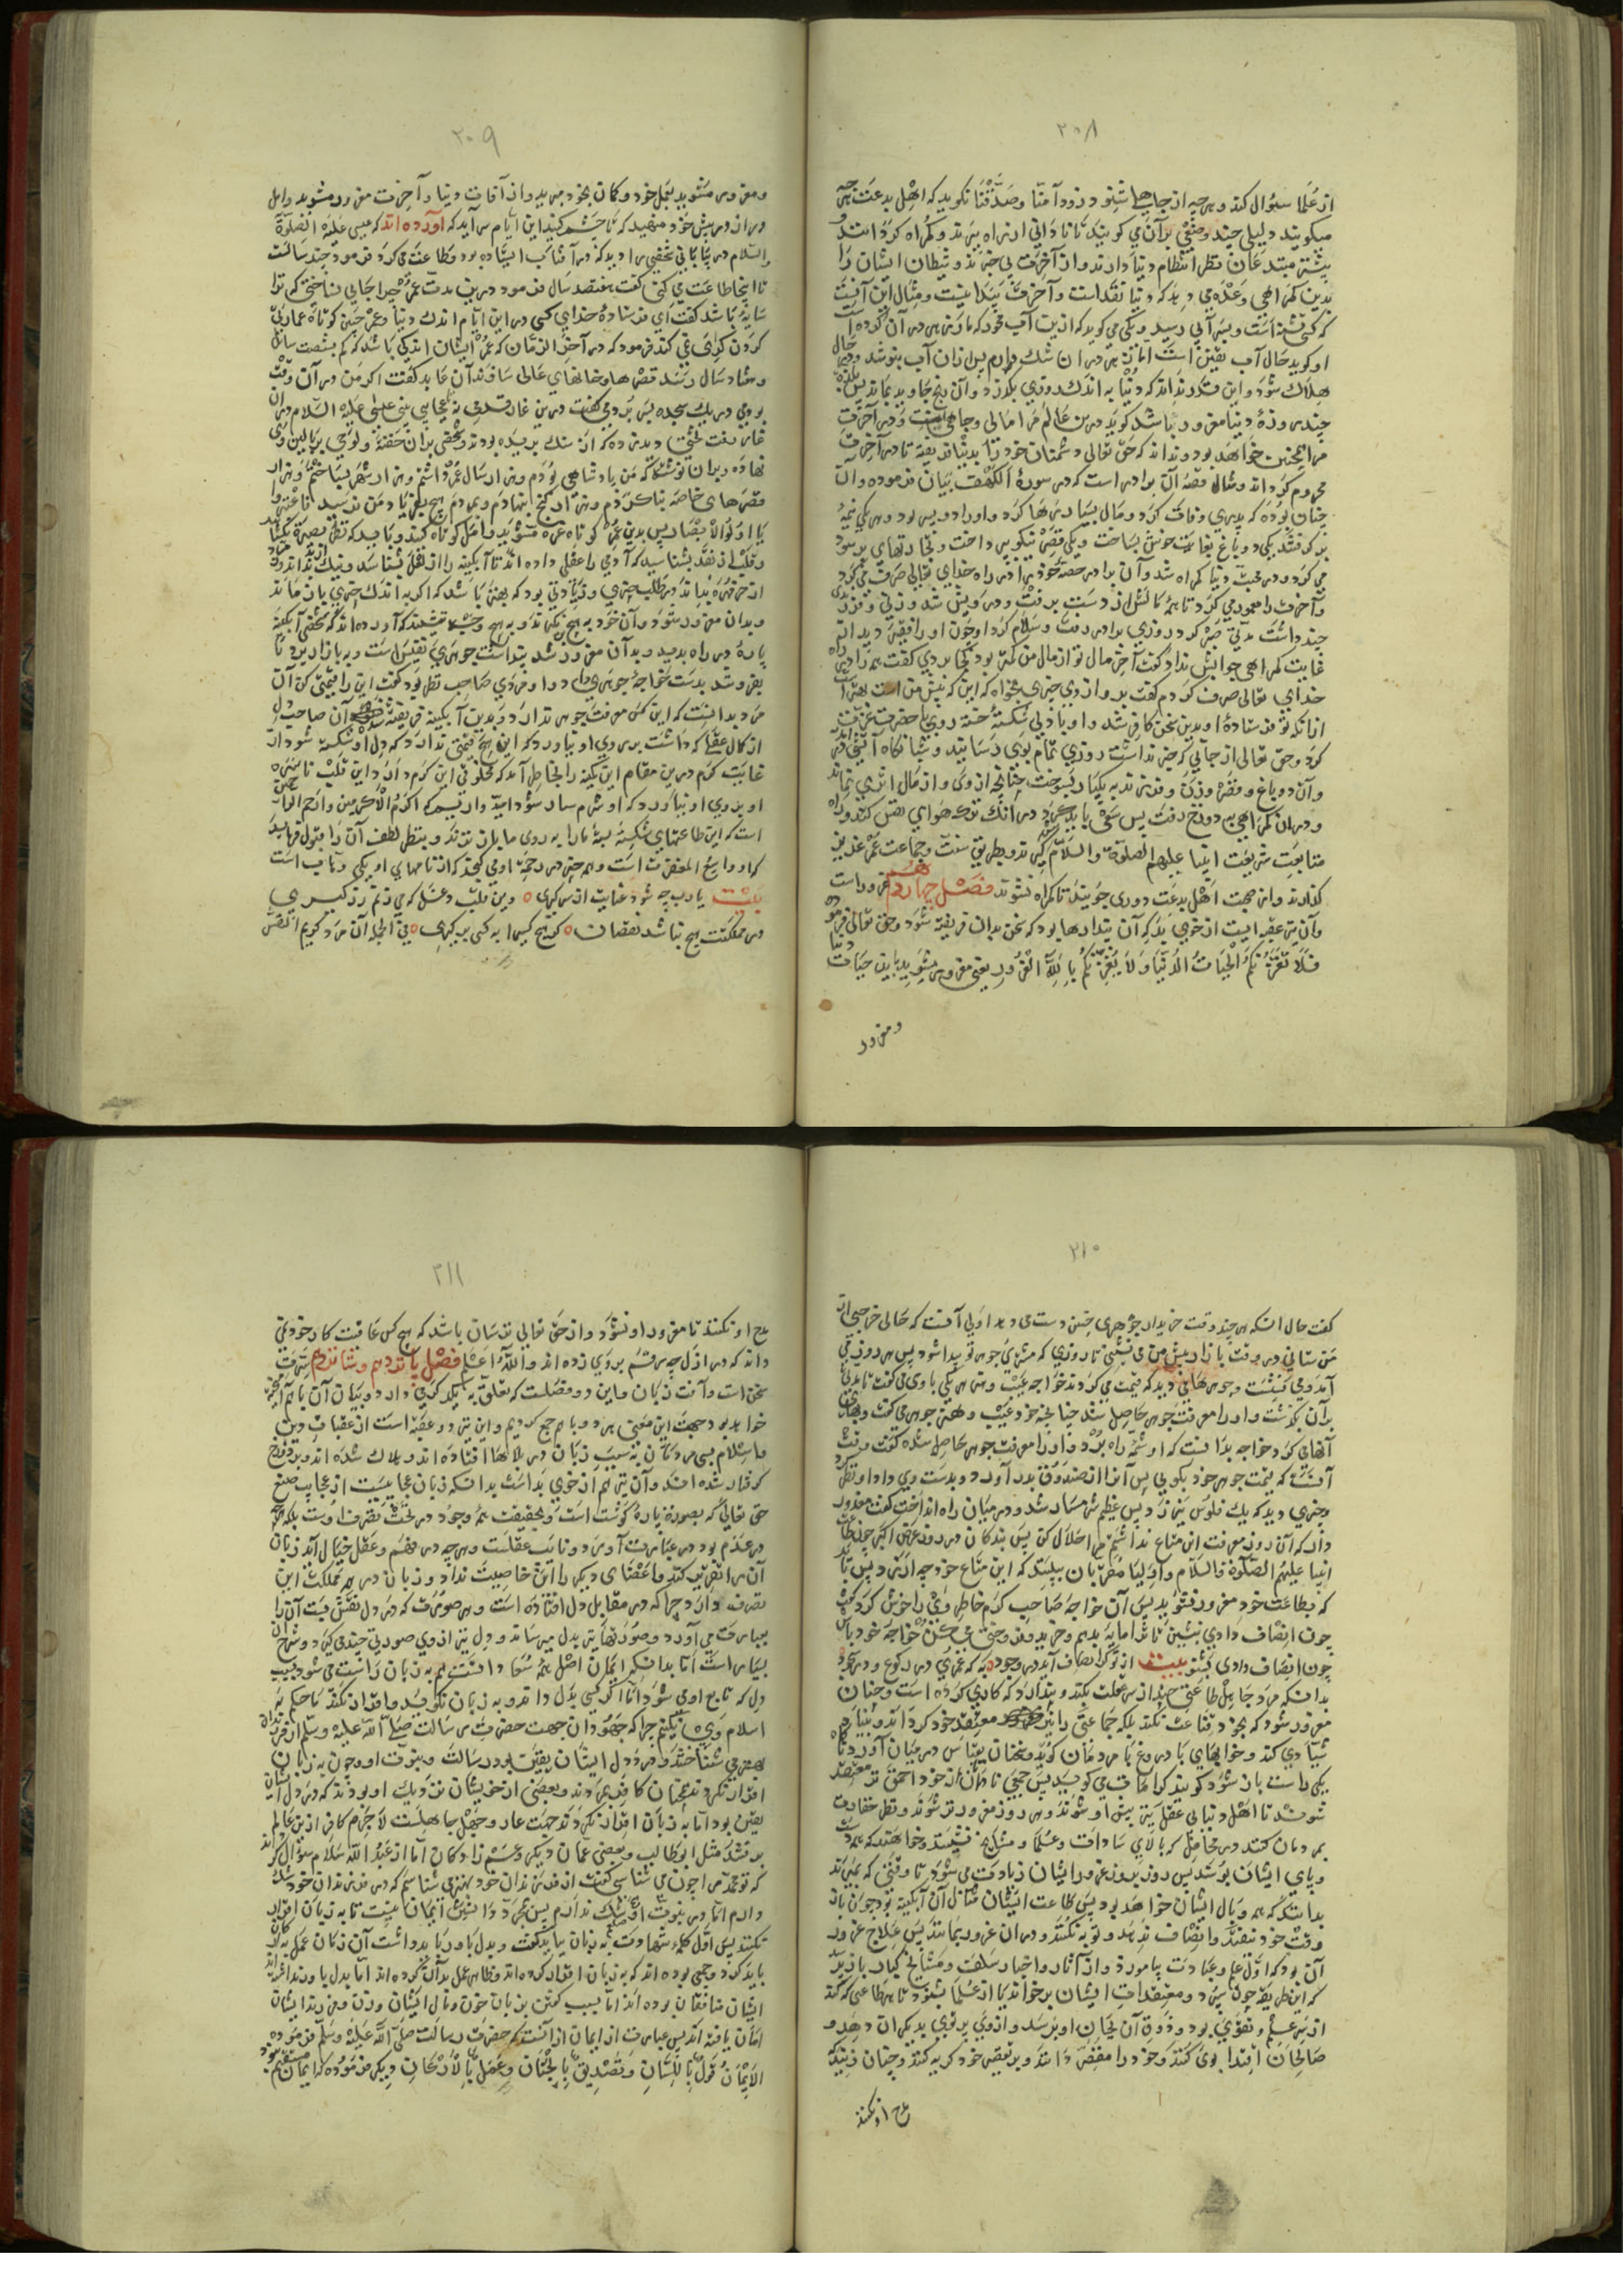 ۲۰۸
از علما سؤال کند و هر چه از جاهل شنود زود آمنا و صدقنا نکوید که اهل بدعت
میکویند دلیلی چند
بیشتر مبتدعان نظر انتظام دنیا دارند و از آخرت بی خبرند و شیطان ایشان را
بدین کمراهی وعده می دهد که دنیا نقد است و آخرت پیدا نیست و مثال این آنست
که کسی تشنه است و بسر آبی رسید و یکی می کوید که ازین آب مخور که مار زهر در آن کرده است
او کوید حال آب یقین است اما زهر در آن شک دارم پس ازان آب بنوشد و
هلاک شود و این قدر نداند که دنیا به اندک روزی بکذرد و آن رنج جاوید بماند پس
چند روزهٔ دنیا مغرور باشد کوید درین عالم مرا مالی و جاهی هست و در آخرت
مرا همچنین خواهد بود و نداند که حق تعالی دشمنان خود را بدنیا فریفته تا در آخرت
محروم کرداند و مثال قصهٔ آن برادر است که در سورة الکهف بیان فرموده و آن
چنان بوده که پدری وفات کرد و مال بسیار
می کرد و در محبت دنیا کمراه شد و آن برادر حصهٔ خود را در راه خدای تعالی صرف می کرد
و آخرت را معمور می کرد تا همهٔ مالش از دست برفت و درویش شد و زنی و فرزندی
چند داشت مدتی صبر کرد روزی برادر رفت و سلام کرد او چون او را فقیر دید از
غایت کمراهی جوابش نداد کفت آخر مال تو از مال من کمتر بود کجا بردی کفت همه را در راه
خدای تعالی صرف کردم کفت برو از وی چیزی بخواه که این که پیش من است بهتر
کرد و حق تعالی از جایی که خبر نداشت روزی تمام بوی رسانید و شبانکاه آتشی
و آن دو باغ و قصر و زن و فرزند به یکبار بسوخت چنانچه از وی و از مال اثری نماند
و در آن کمراهی به دوزخ رفت پس سعی باید کرد در آنک ترک هوای نفس کند و
متابعت شریعت انبیا علیهم الصلوة والسلام کیرد و بطریق سنت و جماعت عمر عزیز
کذارند و از صحبت اهل بدعت دوری جویند تا کمراه نشوند فصل چهاردهم غرور است
و آن نیز عقبه ایست از خوی بد که آن پندارها بود که شخص بدان فریفته شود و حق تعالی فرموده
فلا تغرنکم الحیات الدنیا ولا یغرنکم بالله الغرور یعنی مغرور مشوید باین حیات دنیا
و مغرور
۲۰۹
و مغرور مشوید بعمل خود و کمان بخود مبرید و از آفات دنیا و آخرت مغرور مشوید و امل
دراز در پیش خود منهید که تا چشم کنید این ایام سر آید که آورده اند که عیسی علیه الصلوة
والسلام در بیابانی شخصی را دید که در آفتاب ایستاده بود و طاعت می کرد فرمود چند سالست
تا اینجا طاعت می کنی کفت هفتصد سال فرمود درین مدت عمر چرا جایی نساختی که ترا
سایهٔ باشد کفت ای فرستادهٔ خدای کسی در این ایام اندک دنیا و عمر چنین کوتاه عمارتی
کردن کرای نمی کند فرمود که در آخر الزمان که عمر ایشان اندکی باشد که کم بشصت سال
و هفتاد سال رسد قصرها و خانهای عالی سازند آن عابد کفت اکر من در آن وقت
بودمی در یک سجده بسر بردمی
نهاده و بران نوشته که من پادشاهی بودم و هزار سال عمر داشتم و هزار شهر بساختم و هزار
قصرهای خاصه بنا کردم و هزار کنج بنهادم و بمردم هیچ بفریاد من نرسید فاعتبروا
یا اولو الابصار پس بدین عمر کوتاه غره مشوید و امل کوتاه کنید و باید که نظر بصیرة بکشاید
و قلب از نقد بشناسد که آدمی را عقلی داده اند تا آبکینه را از لعل بشناسد و نیک
و بدان مغرور شود و آن خود به هیچ نکیرند و به هیچ وجهی نستانند که آورده اند که شخصی آبکینهٔ
پارهٔ در راه بدید و بدان مغرور شد پنداشت جوهری نفیس است و به بازار برد تا
بفروشد بدست خواجهٔ جوهری داد و او مردی صاحب نظر بود کفت این را قیمتی کن آن
مرد بدانست که این کس معرفت جوهر ندارد و بدین آبکینه فریفته شده آن صاحب دل
از کمال عقلی که داشت بر روی او نیاورد که این هیچ قیمتی ندارد که دل او شکسته شود از
غایت کرم درین مقام این نکته را بخاطر آمد که مخلوقی این کرم دارد و این قلب ناسره
او بروی او نیاورد که او شرمسار شود امید واریم که اکرم الاکرمین و ارحم الراحمین
است که این طاعتهای شکسته بستهٔ ما را به روی ما باز نزند و بنظر لطف آن را قبول فرماید
که او واسع المغفرت است
بیت یا رب چه شود عنایت از سر کیری ٥ وین قلب دغل که می زنم زر کیری
در مملکتت هیچ نباشد نقصان ٥ کر هیچ کسی را به کسی بر کیری ٥ فی الجمله آن مرد کریم النفس
۲۱۰
کفت حال آنکه هر چند وقت خریدار جوهری چنین دست می دهد اولی آنست که حالی خرجی از
من ستانی و هر وقت بازار پیش من می نشینی تا روزی که مشتری جوهر تو پیدا شود پس هر روز می
آمد و می نشست و جوهرهایی دید که قیمت می کردند خواجه عیب و هنر هر یکی با وی می کفت تا مدتی
بران بکذشت و او را معرفت جوهر حاصل شد چنانچه خود عیب و هنر جوهر می کفت و بهای
آنهایی کرد خواجه بدانست که او شمه راه برد و او را معرفت جوهر حاصل شده کفت وقت
آنست که قیمت جوهر خود بکویی پس آن را از صندوق بدر آورد و بدست وی داد او نظر کرد
و چیزی دید که یک فلوس نیرزد پس عظیم شرمسار شد و در میان راه انداخت کفت معذور
دار که آن روز معرفت این متاع نداشتم مرا حلال کن پس بندکان در روز عرض اکبر چون طاعت
انبیا علیهم الصلوة والسلام و اولیا و مقربان ببینند که این متاع خود چه ارزد پس باید
که بطاعت خود مغرور نشوید پس آن خواجه صاحب کرم خاطر وی را خوش کرد کفت
چون انصاف دادی بنشین تا ترا مایه بدهم و خرید و فروخت می کن
بدانکه مرد جاهل طاعتی چند از سر غفلت بکند و پندارد که کاری کرده است و چنان
مغرور شود که بخود قناعت نکند بلکه جماعتی را نیز معتقد خود کرداند و بنیاد
شیادی کند و خوابهای با دروغ با مردمان کوید و سخنان بقیاس در میان آورد تا
یکی راست باز شود کویند کرامات می کوید پس جمعی نادان از خود احمق تر معتقد
شوند تا اهل دنیای بی عقل نیز پیش او شوند و هر روز مغرورتر شوند و نظر حقارت
بمردمان کنند در محافل که بالای سادات و علما و مشایخ نشینند و خواهند که همه دست
و پای ایشان بوسند پس روز بروز غرور ایشان زیادت می شود تا وقتی که بمیرند
بدانند که همه وبال ایشان خواهد بود پس طاعت ایشان مثال آن آبکینه بود چون باز
وقت خود نیفتد و انصاف ندهد و توبه نکند و در آن غرور بماند پس علاج غرور
آن بود که اول علم و عبادت بیاموزد و از آثار و اخبار سلف و مشایخ کبار باز پرسد
که این طریقه چون سپرد و معتقدات ایشان برخواند یا از علما بشنود تا هر طاعتی که کند
از سر علم و تقوی بود و ذوق آن بجان او برسد و از وی پرتوی بدیکران دهد و
صالحان اقتدا بوی کنند و خود را مقصر داند و بر تقصیر خود کریه کند و چنان نزید که
مدح او نکنند
۲۱۱
مدح او نکنند تا مغرور او نشود و از حق تعالی ترسان باشد که هیچ کس عاقبت کار خود نمی
داند که در ازل چه رقم بر وی زده اند والله اعلم فصل پانزدهم و شانزدهم شرهٔ
سخن است و آفت زبان و این دو فصلست که تعلق به یکدیکر می دارد و بیان آن باهم
خواهد بود جهت این معنی هر دو با هم جمع کردیم و این نیز دو عقبه است از عقبات دین
و اسلام بسی مردمان به سبب زبان در بلاها افتاده اند و هلاک شده اند و بدوزخ
کرفتار شده اند و آن نیز هم از خوی بد است بدانکه زبان عجایبست از عجایب صنع
حق تعالی که بصورة پارهٔ کوشت است و بحقیقت همه وجود در تحت تصرف اوست بلکه هر چه
در عدم بود در عبارت آورد و نایب عقلست و هر چه در فهم و عقل و خیال آید زبان
آن را تقریر کند و اعضای دیکر را این خاصیت ندارد و زبان در همه مملکت این
تصرف دارد چرا که در مقابل دل افتاده است و هر صورت که در دل نقش بست آن را
بعبارت می آورد و صورتها نیز بدل میرساند و دل نیز از وی صورتی چند می کیرد و شرح آن
بسیار است اما بدانک ایمان اصل همه سخنها دانستن و به زبان راست می شود بسبب
دل که تابع او می شود اما اکر کسی بدل داند و به زبان نکوید و اقرار نکند ما حکم به
اسلام وی نکنیم چرا که جهودان جهت حضرت رسالت صلی الله علیه وسلم از فرزندان
بهتر می شناختند و در دل ایشان یقین بود رسالت و نبوت او و چون به زبان
اقرار نکردند همچنان کافر مردند و بعضی از خویشان نزدیک او بودند که در دل ایشان
یقین بود اما به زبان اقرار نکردند جهت عار و جهل جاهلیت لا جرم کافر از این عالم
برفتند مثل ابوطالب و بعضی عمان دیکر و عم زادکان اما از عبد الله سلام سؤال کردند
که تو محمد را چون می شناسی کفت از فرزندان خود بهتر می شناسم که در فرزندان خود شک
دارم اما در نبوت او شک ندارم پس مجرد دانش ایمان نیست تا به زبان اقرار
نکنند پس اول کلمهٔ شهادت به زبان بباید کفت و بدل باور باید داشت آن زمان عمل به ارکان
باید کرد و جمعی بوده اند که به زبان اقرار کرده اند و ظاهر عمل بدان کرده اند اما بدل باور نداشته اند
ایشان منافقان بوده اند اما بسبب کفتن به زبان خون و مال ایشان و زن و فرزند ایشان
امان یافته اند پس عبارت از ایمان آنست که حضرت رسالت صلی الله علیه وسلم فرموده
الایمان قول باللسان و تصدیق بالجنان و عمل بالارکان دیکر فرموده که ایمان